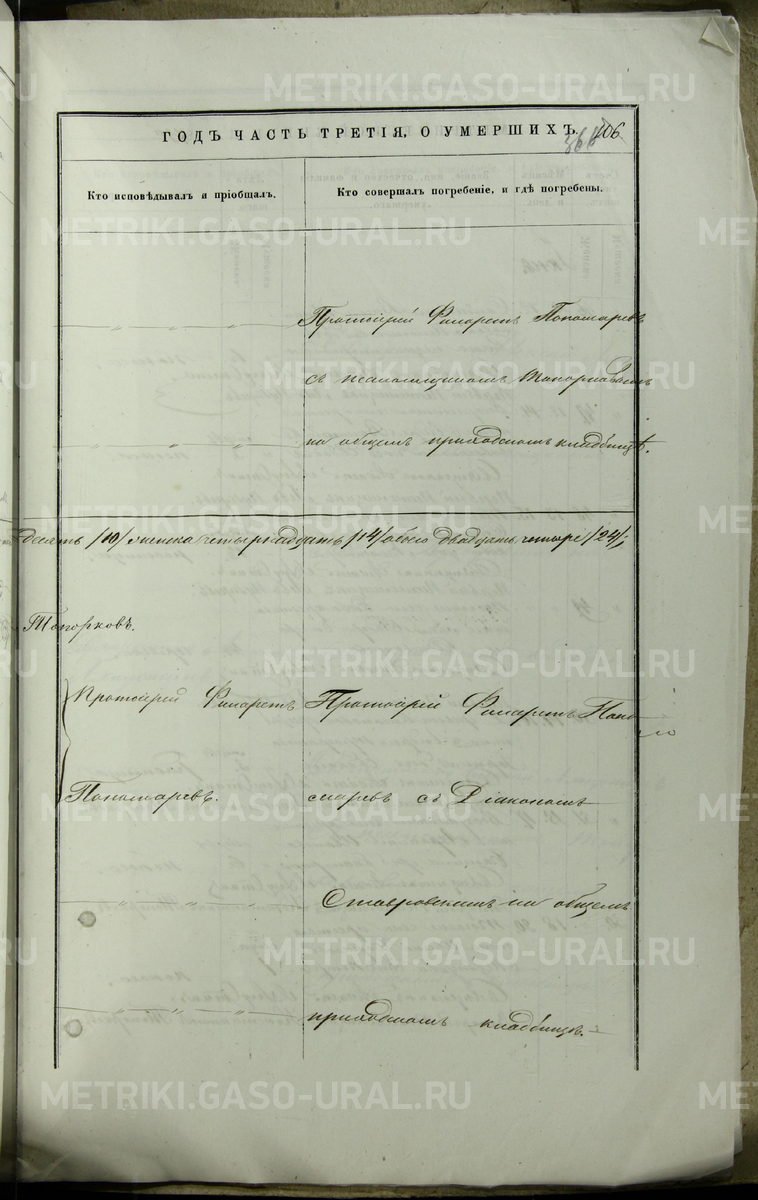 ГОДЪ ЧАСТЬ ТРЕТІЯ, О УМЕРШИХЪ. 406
366
Кто исповѣдывалъ и пріобщалъ.
Кто совершалъ погребеніе, и гдѣ погребены.
Протоіерей Филаретъ Пономаревъ
съ псаломщикомъ Топорковымъ
на общемъ приходскомъ кладбищѣ.
десять /10/ женска четырнадцать /14/ обоего двадцать четыре /24/;
Топорковъ.
Протоіерей Филаретъ
Пономаревъ.
Протоіерей Филаретъ Поно
маревъ съ Діакономъ
Ставровскимъ на общемъ
приходскомъ кладбищѣ.
METRIKI.GASO-URAL.RU